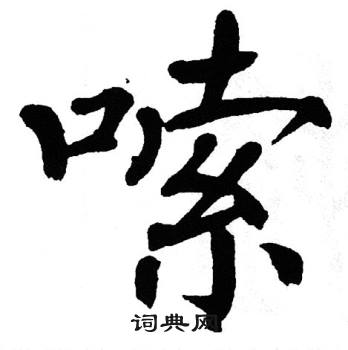 嗦
词典网